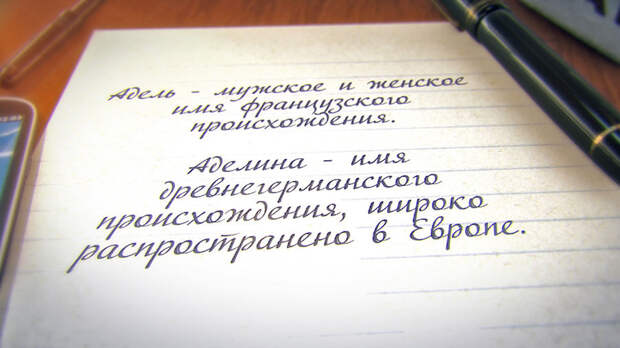 Адель - мужское и женское
имя французского
происхождения.
Аделина - имя
древнегерманского
происхождения, широко
распространено в Европе.